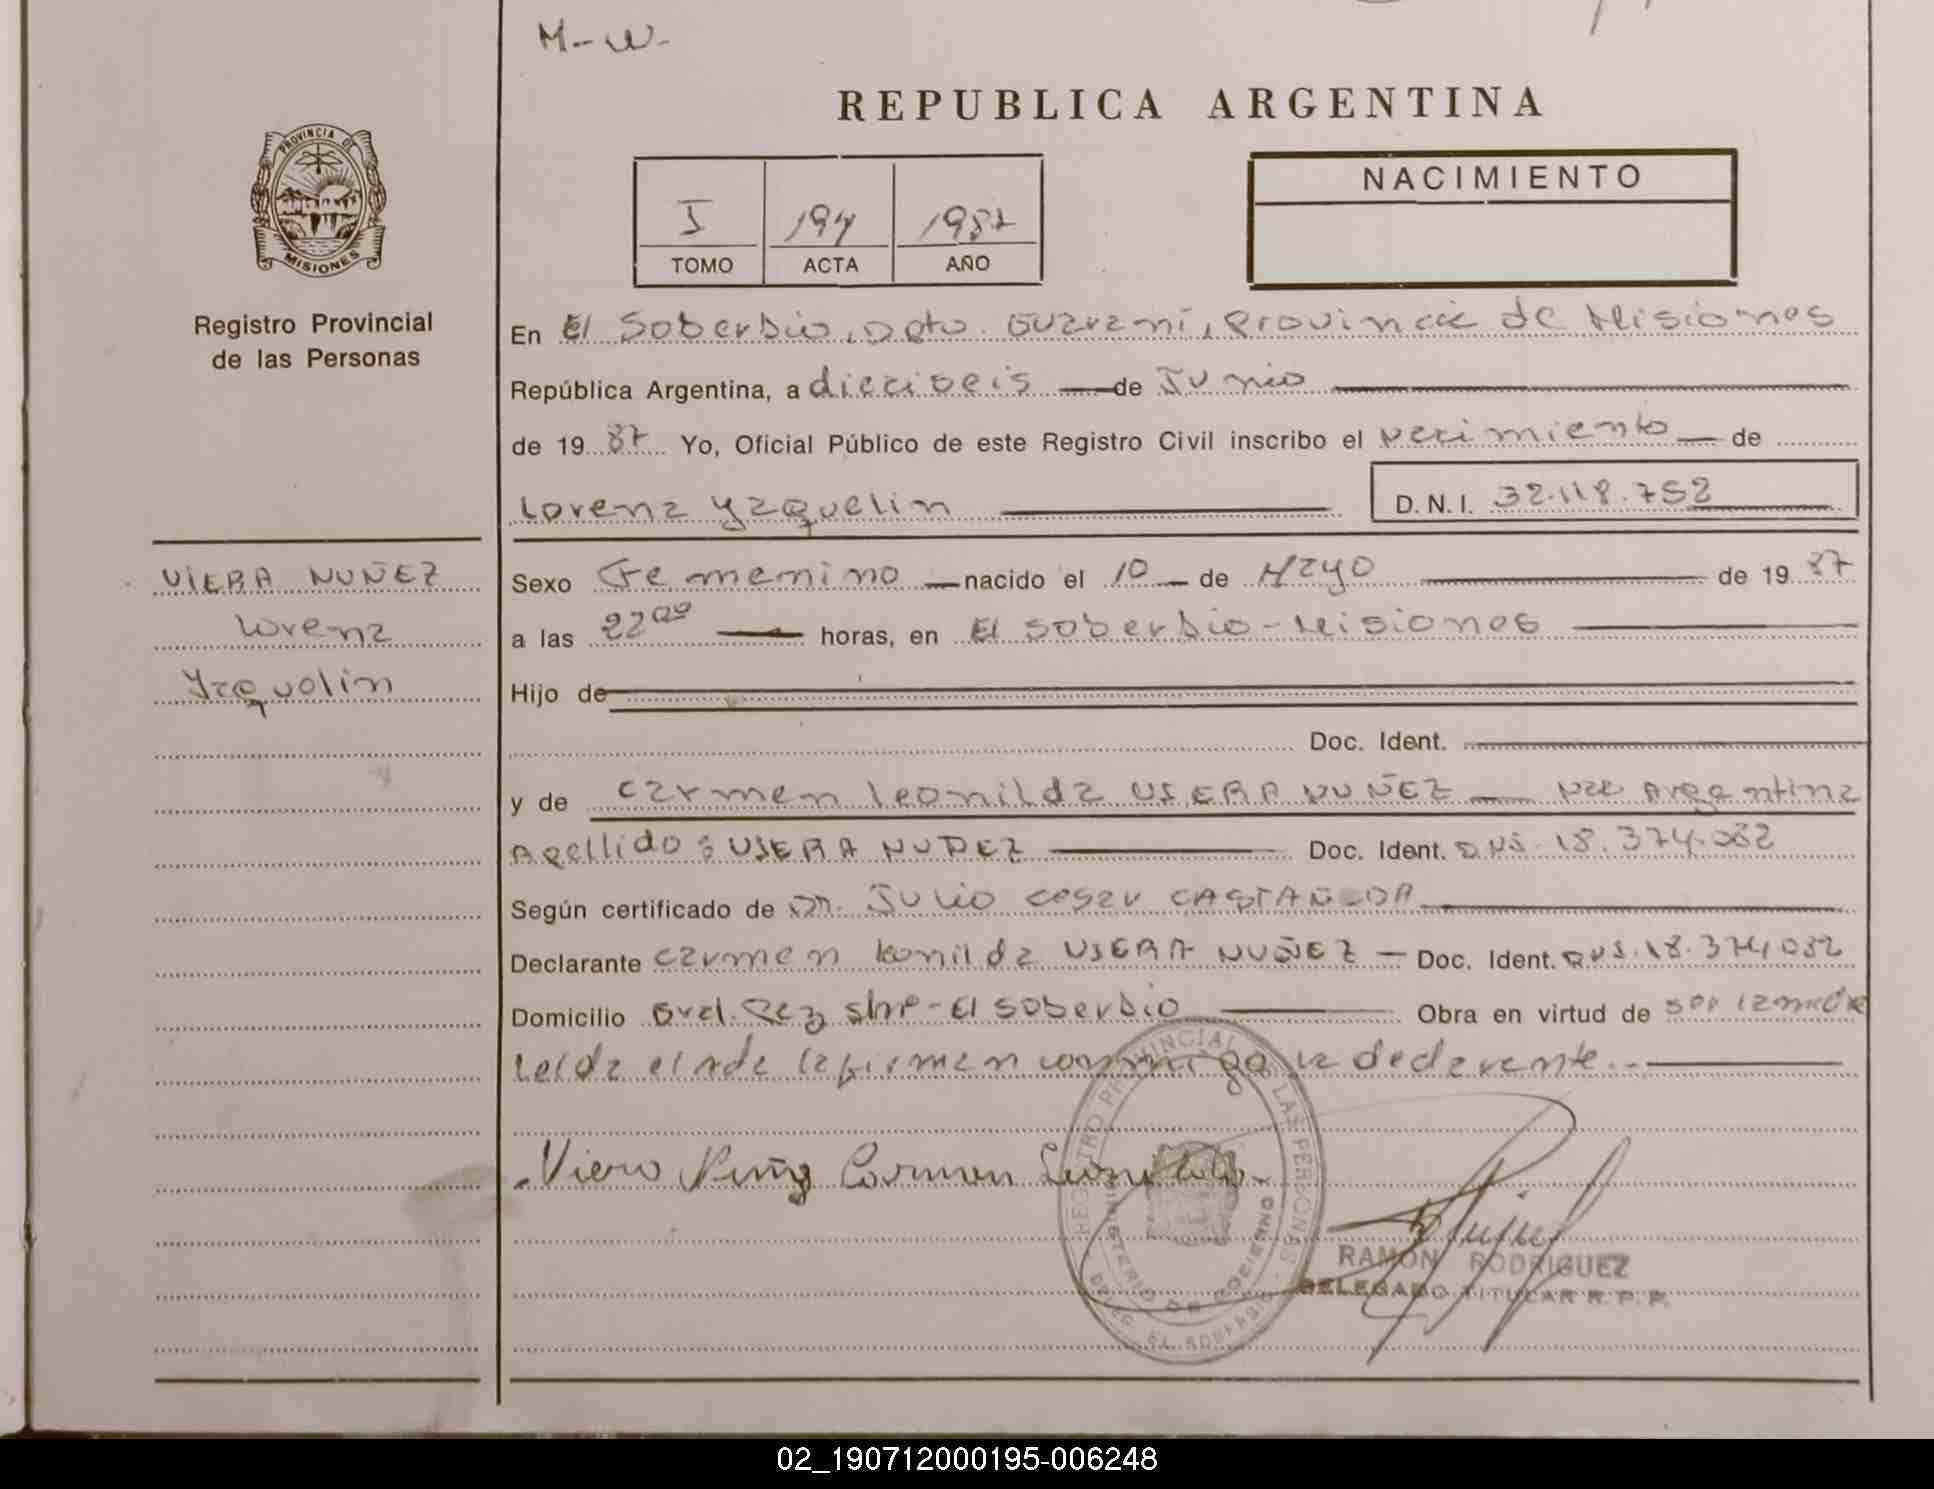 M-W-
REPUBLICA ARGENTINA
PROVINCIA DE
MISIONES
Registro Provincial
de las Personas
I 194 1987
TOMO ACTA AÑO
NACIMIENTO
En El Soberbio, Dpto. Guarani, Provincia de Misiones
República Argentina, a dieciseis de Junio
de 19 87 Yo, Oficial Público de este Registro Civil inscribo el Nacimiento de
Lorena Yaquelin D.N.I. 32.118.752
VIERA NUÑEZ
Lorena
Yaquelin
Sexo Femenino nacido el 10 de Mayo de 19 87
a las 22 00 horas, en El Soberbio - Misiones
Hijo de
Doc. Ident.
y de Carmen Leonilda VIERA NUÑEZ Nac Argentina
Apellido: VIERA NUÑEZ Doc. Ident. DNI. 18.374.032
Según certificado de Dr. Julio Cesar CASTAÑEDA
Declarante Carmen Leonilda VIERA NUÑEZ - Doc. Ident. DNI. 18.374.032
Domicilio Gral. Paz s/nº - El Soberbio Obra en virtud de ser la madre
Leida el acta la firman conmigo la declarante.-
Viera Nuñez Carmen Leonilda
REGISTRO PROVINCIAL DE LAS PERSONAS
MINISTERIO DE GOBIERNO
DELEG. EL SOBERBIO
RAMON RODRIGUEZ
DELEGADO TITULAR R.P.P.
02_190712000195-006248